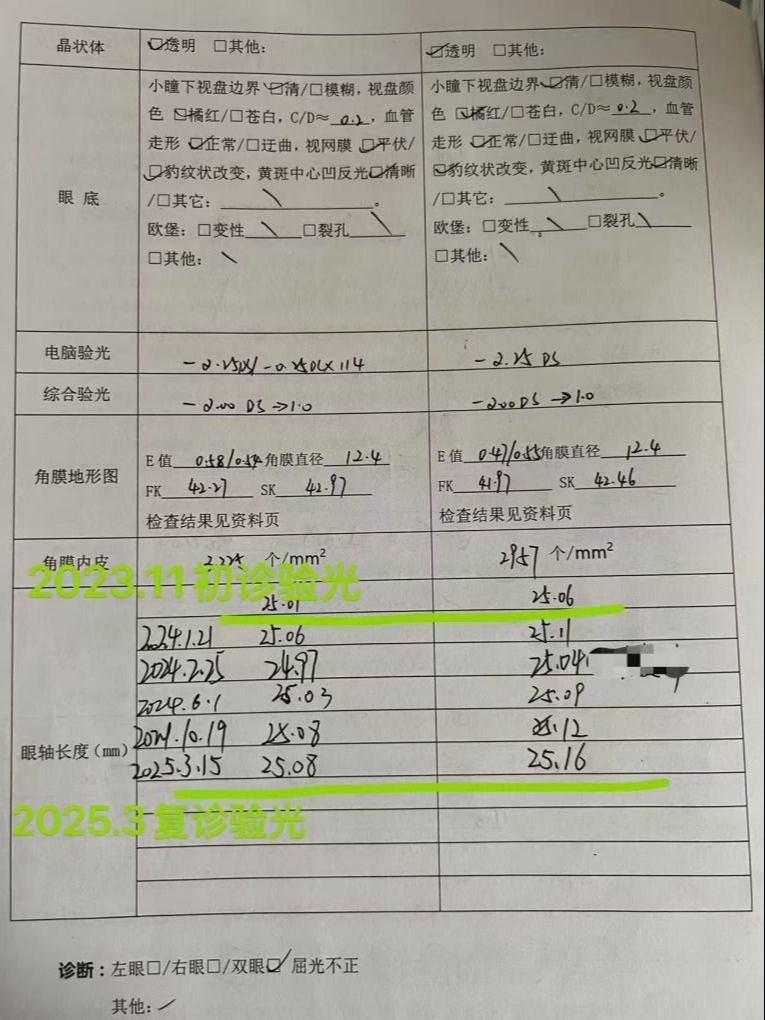 晶状体 ☑透明 □其他: ☑透明 □其他:
眼 底
小瞳下视盘边界☑清/□模糊，视盘颜
色 ☑橘红/□苍白，C/D≈ 0.2，血管
走形 ☑正常/□迂曲，视网膜 ☑平伏/
☑豹纹状改变，黄斑中心凹反光☑清晰
/□其它: \ 。
欧堡: □变性 \ □裂孔 \
□其他: \
小瞳下视盘边界☑清/□模糊，视盘颜
色 ☑橘红/□苍白，C/D≈ 0.2，血管
走形 ☑正常/□迂曲，视网膜☑平伏/
☑豹纹状改变，黄斑中心凹反光☑清晰
/□其它: \ 。
欧堡: □变性 \ □裂孔 \
□其他: \
电脑验光 -2.25DS/-0.25DC×114 -2.25 DS
综合验光 -2.00 DS→1.0 -2.00DS→1.0
角膜地形图
E 值 0.58/0.54 角膜直径 12.4
FK 42.27 SK 42.97
检查结果见资料页
E 值 0.47/0.55 角膜直径 12.4
FK 41.97 SK 42.46
检查结果见资料页
角膜内皮 个/mm² 2957 个/mm²
2023.11初诊验光
眼轴长度（mm）
25.01 25.06
2024.1.21 25.06 25.11
2024.2.25 24.97 25.04
2024.6.1 25.03 25.09
2024.10.19 25.08 25.12
2025.3.15 25.08 25.16
2025.3复诊验光
诊断：左眼□/右眼□/双眼☑ 屈光不正
其他: /